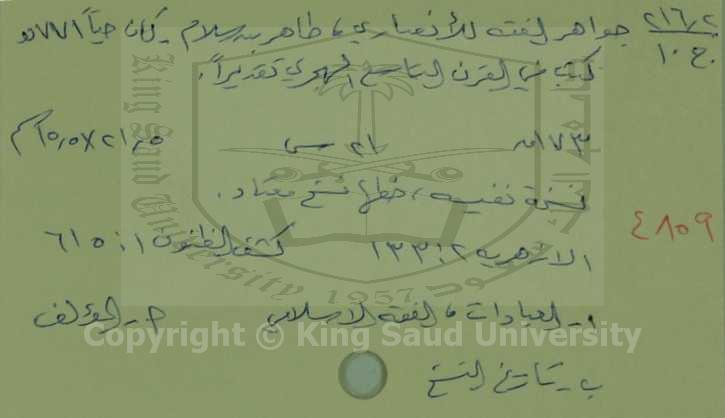 ٢١٦٫٢ جواهر الفقه للأنصاري، طاهر بن سلام - كان حيا ٧٧١هـ
ج . ١٠ كتب في القرن التاسع الهجري تقديراً.
١٧٣ق ٢١ س ٢١٫٥×١٥٫٥سم
نسخة نفيسة، خطها نسخ معتاد.
٤٨٥٩
الازهرية ٢: ١٣٣ كشف الظنون ١: ٦١٥
١- العبادات، الفقه الاسلامي أ- المؤلف
ب- تاريخ النسخ
King Saud University
1957
Copyright © King Saud University